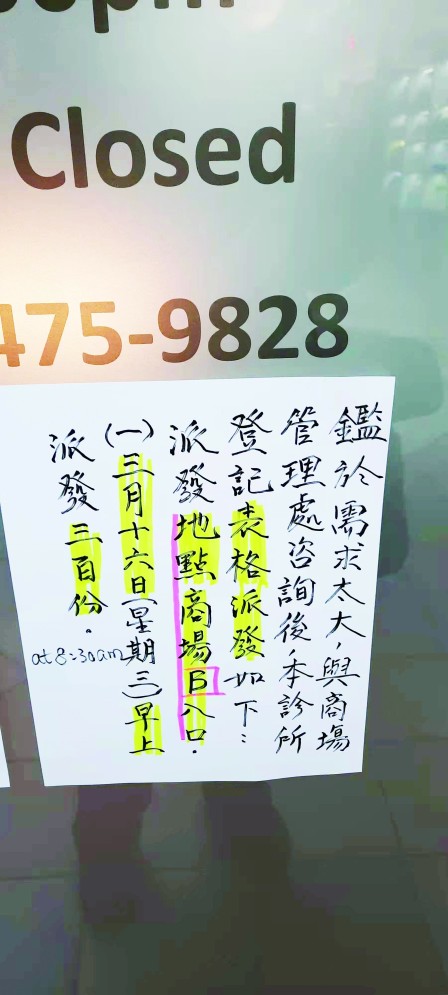 Closed
475-9828
鑑於需求太大，與商場
管理處咨詢後，本診所
登記表格派發如下：
派發地點商場B入口．
(一)三月十六日(星期三)早上
派發三百份．
at 8:30am